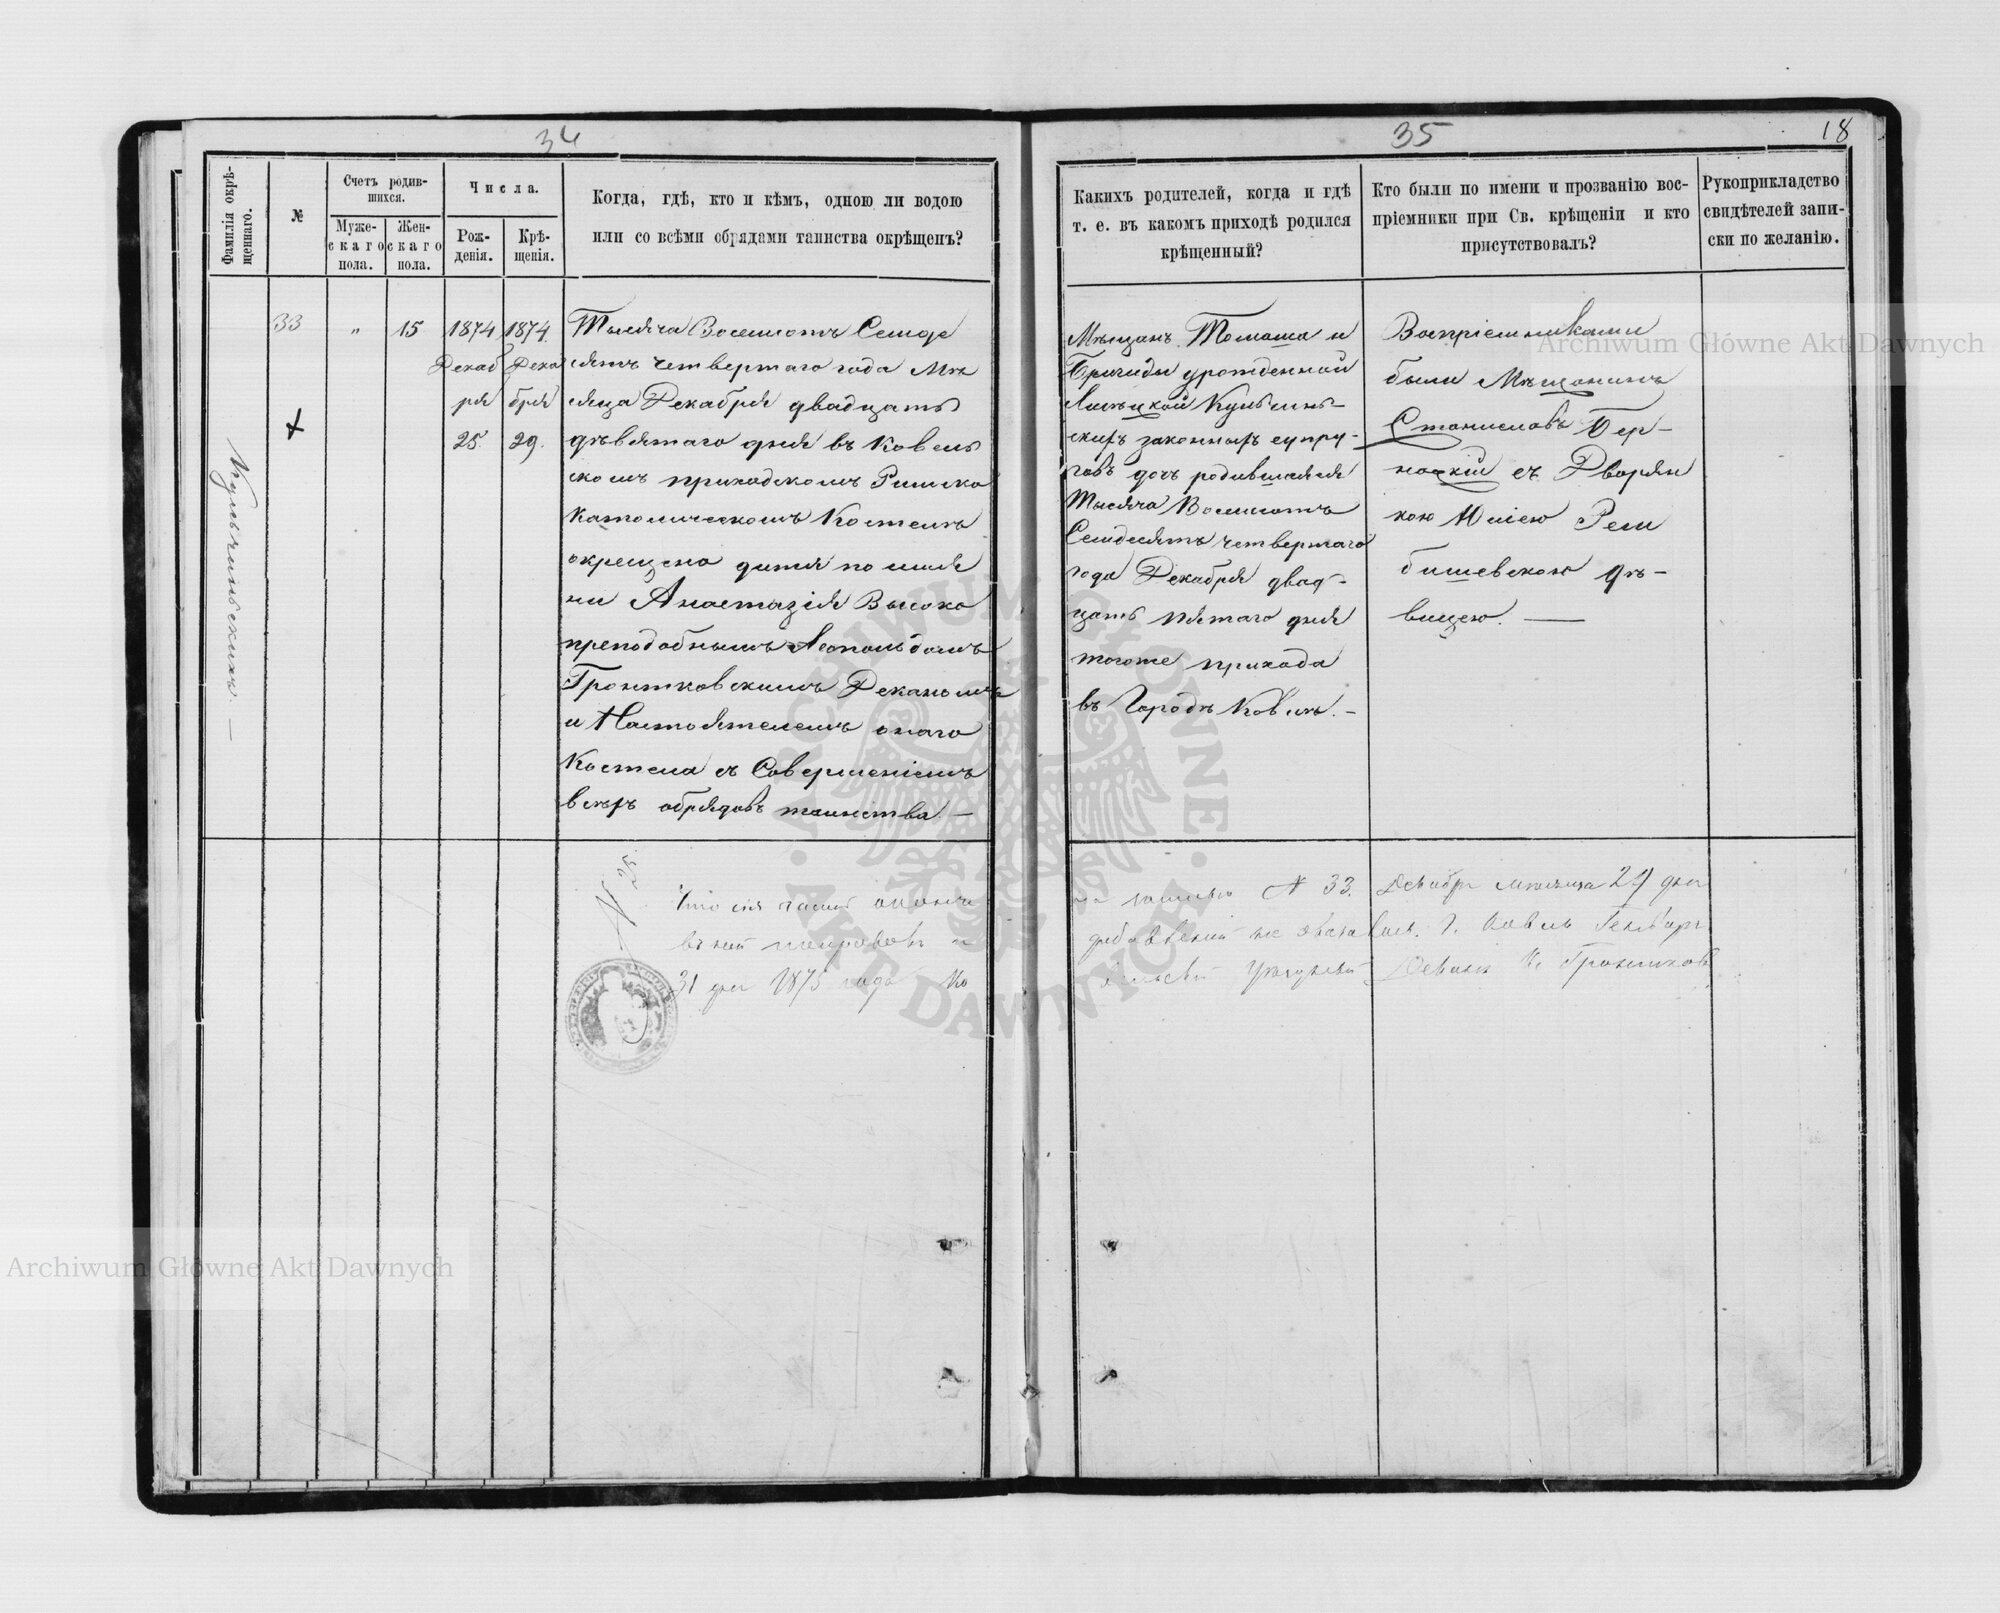 34
Фамилія окрѣ-
щеннаго.
№
Счетъ родив-
шихся.
Муже-
скаго
пола.
Жен-
скаго
пола.
Числа.
Рож-
денія.
Крѣ-
щенія.
Когда, гдѣ, кто и кѣмъ, одною ли водою
или со всѣми обрядами таинства окрѣщенъ?
33
"
15
1874
Декаб
ря
25.
1874.
Дека
бря
29.
Тысяча Восемсотъ Семьде
сятъ четвертаго года Мѣ
сяца Декабря двадцать
дѣвятаго дня въ Ковель
скомъ приходскомъ Римско
Католическомъ Костелѣ
окрещено дитя по име
ни Анастазія Высоко
преподобнымъ Леопольдомъ
Гронтковскимъ Деканомъ
и Настоятелемъ онаго
Костела съ Совершеніемъ
всѣхъ обрядовъ таинства. —
Что сія
въ ней
31 дня 1875 года Ко
35
18
Какихъ родителей, когда и гдѣ
т. е. въ какомъ приходѣ родился
крѣщенный?
Кто были по имени и прозванію вос-
пріемники при Св. крѣщеніи и кто
присутствовалъ?
Рукоприкладство
свидѣтелей запи-
ски по желанію.
Мѣщанъ Томаша и
Бригиды урожденной
Кульчинь-
скихъ законныхъ супру-
говъ дочь родившаяся
Тысяча Восемсотъ
Семдесятъ четвертаго
года Декабря двад-
цать пятаго дня
тогоже прихода
въ Городѣ Ковлѣ. —
Воспріемниками
были Мѣщанинъ
Станиславъ Бер-
наскій съ Дворян
кою Юліею Рем
бишевскою дѣ-
вицею. —
N 33. Декабря мѣсяца 29 дня
не оказалось. Г. Ковель Генваря
Деканъ Кс Гронтков
Archiwum Główne Akt Dawnych
Archiwum Główne Akt Dawnych
ARCHIWUM GŁÓWNE · AKT DAWNYCH ·